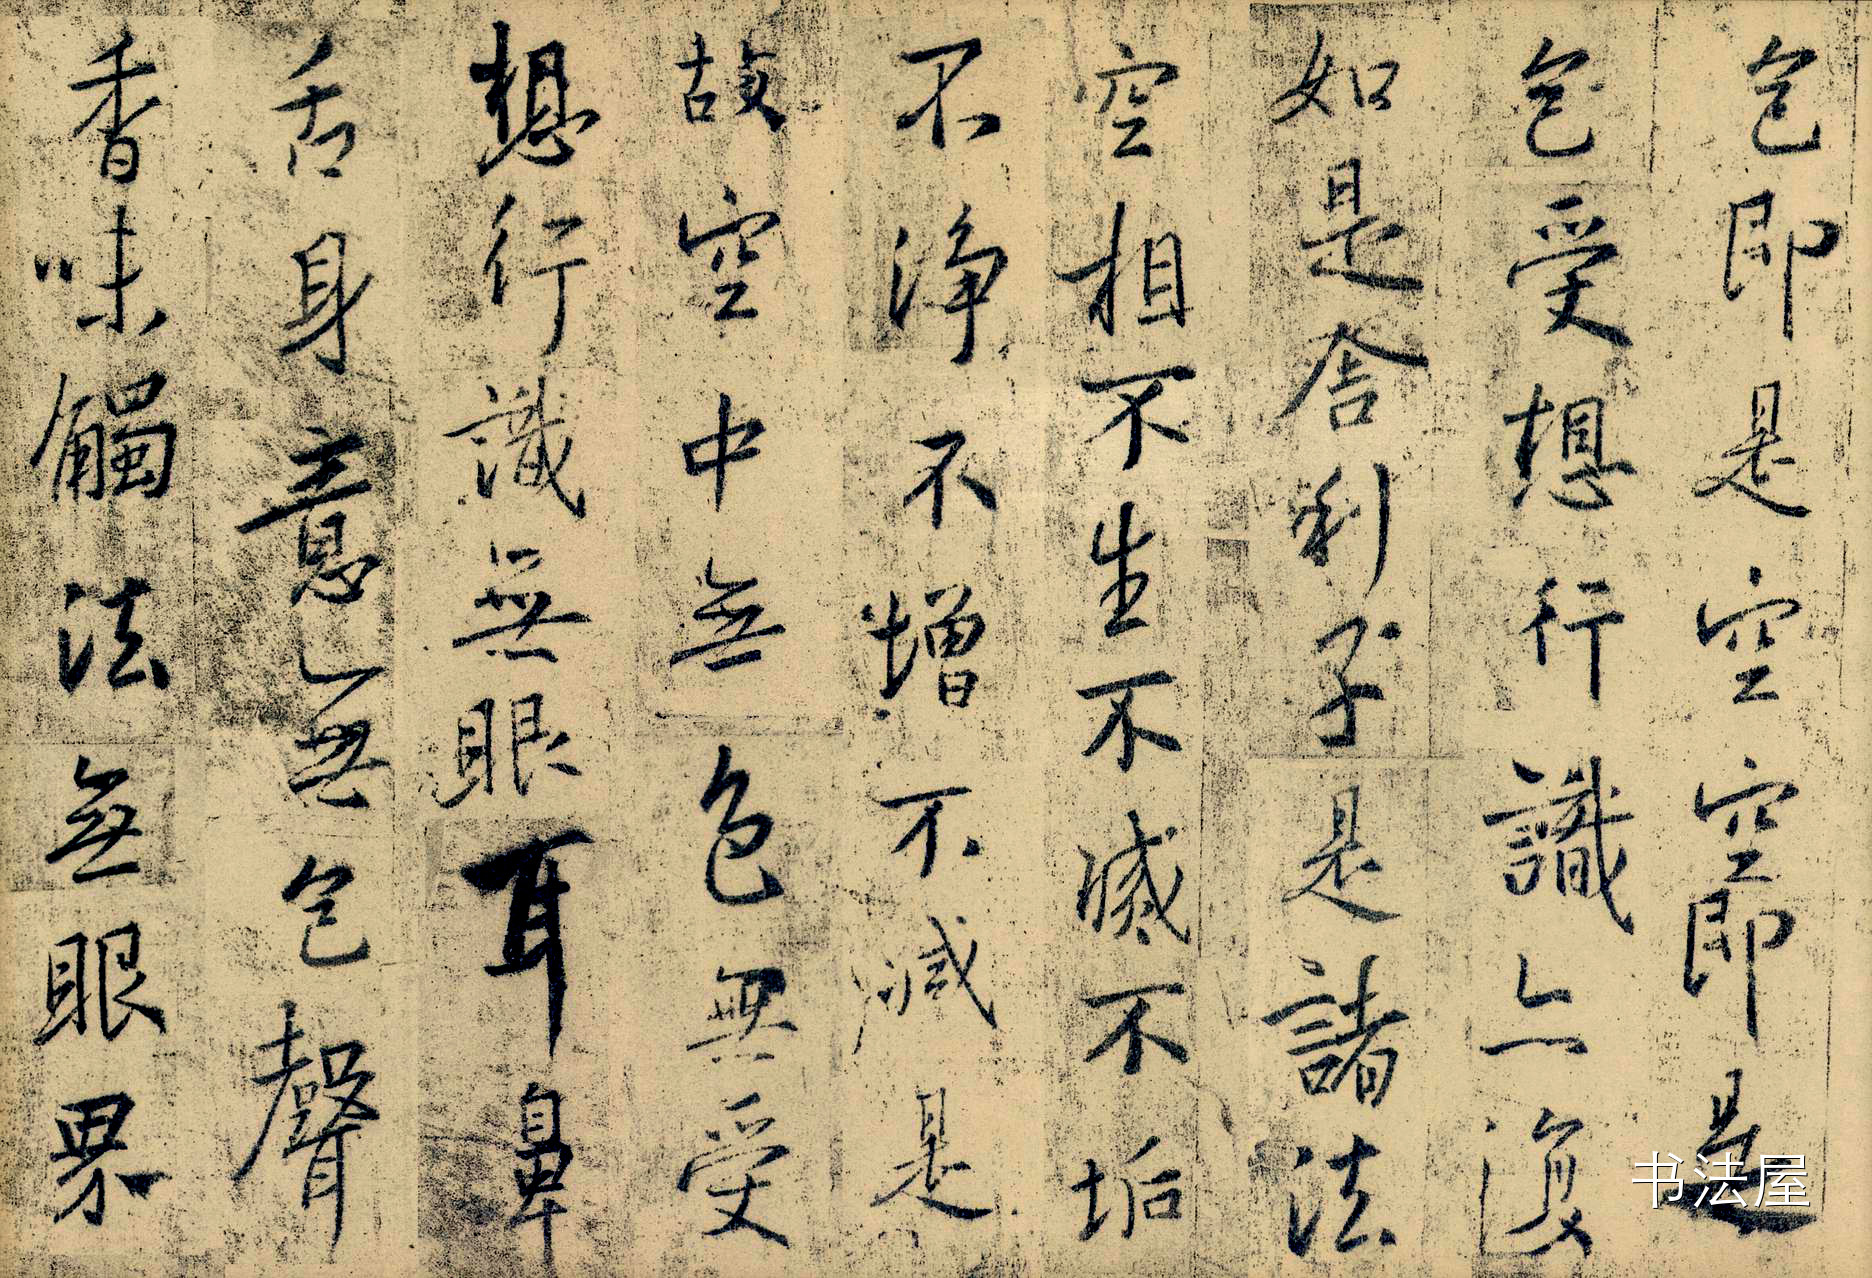 色即是空空即是
色受想行識亦復
如是舍利子是諸法
空相不生不滅不垢
不淨不增不減是
故空中無色無受
想行識無眼耳鼻
舌身意無色聲
香味觸法無眼界
书法屋